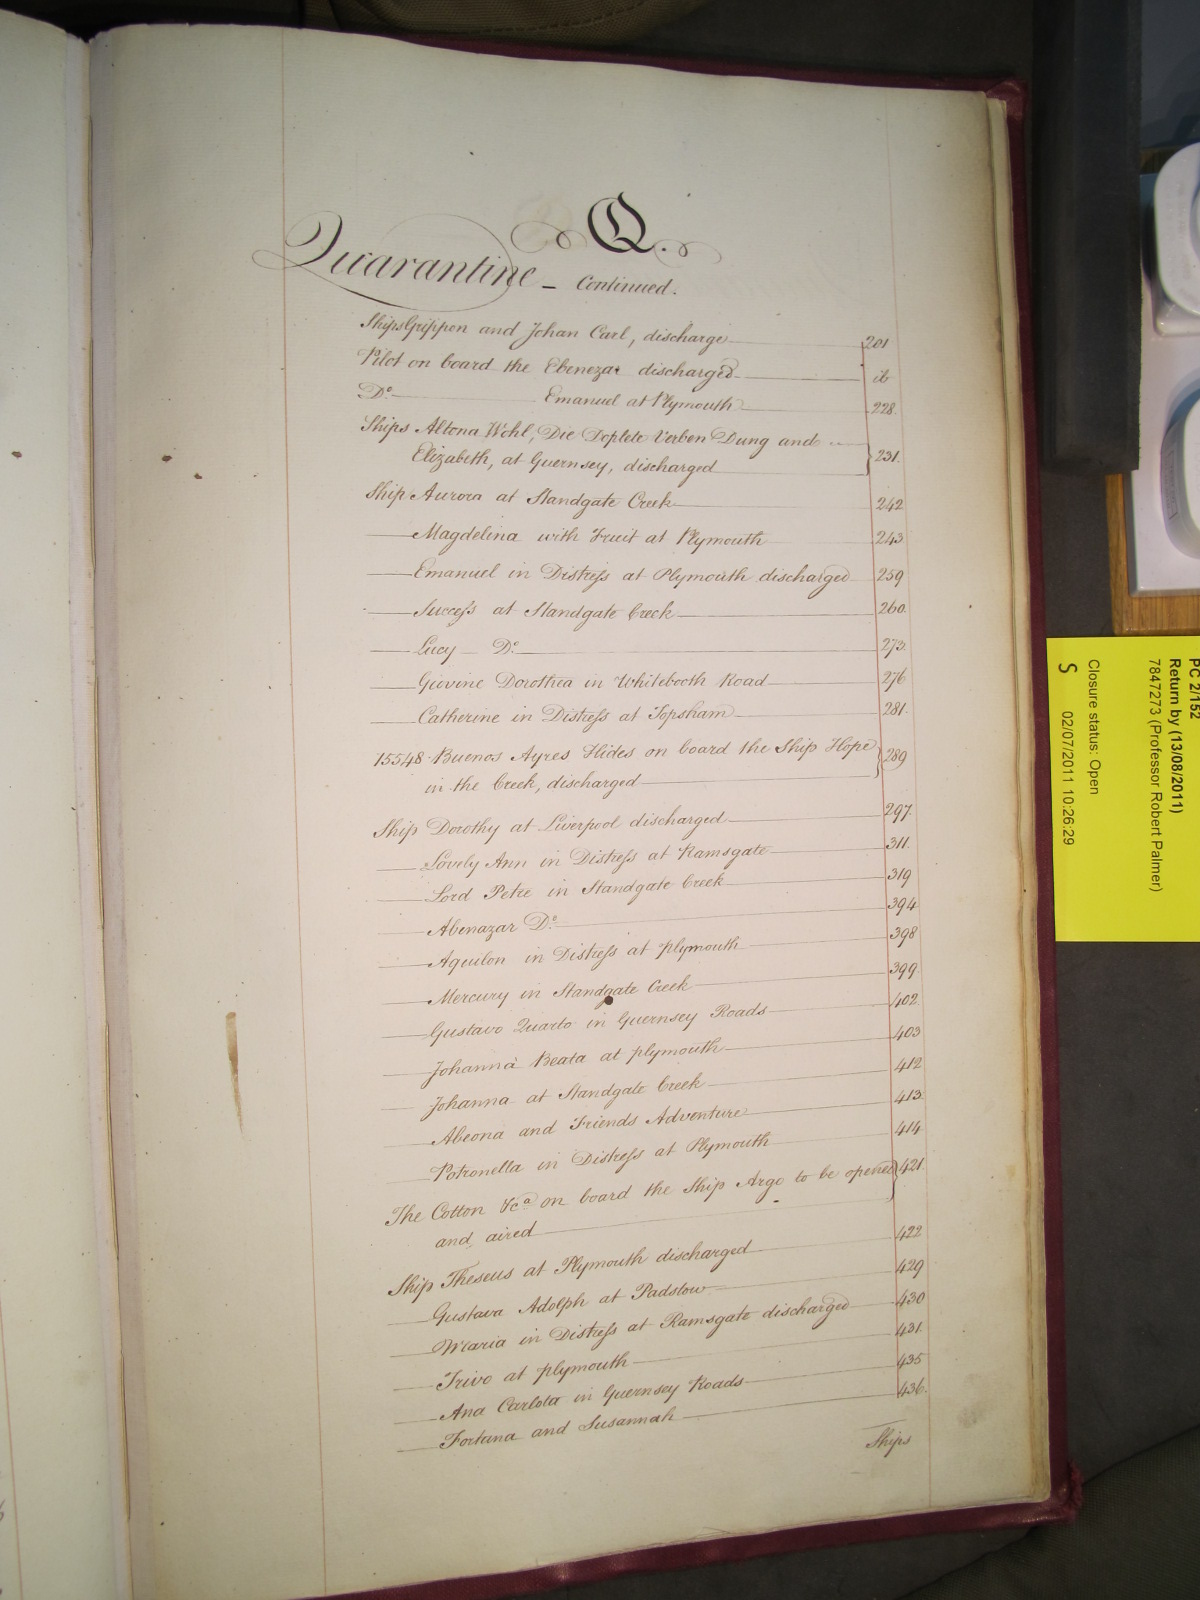 Q.
Quarantine - Continued.
Ships Grippen and Johan Carl, discharge 201
Pilot on board the Ebenezar discharged 
ib
Do. Emanuel at Plymouth 228.
Ships Altona Wohl, Die Doplete Verben Dung and
Elizabeth, at Guernsey, discharged 231.
Ship Aurora at Standgate Creek 242
Magdelina with Fruit at Plymouth 243
Emanuel in Distress at Plymouth discharged 259
Success at Standgate Creek 260.
Lucy Do. 273.
Giovine Dorothea in Whitebooth Road 276
Catherine in Distress at Topsham 281.
15548 Buenos Ayres Hides on board the Ship Hope
in the Creek, discharged 289
Ship Dorothy at Liverpool discharged 297.
Lovely Ann in Distress at Ramsgate 311.
Lord Petre in Standgate Creek 319
Abenazar Do. 394
Aquilon in Distress at plymouth 398
Mercury in Standgate Creek 399
Gustavo Quarto in Guernsey Roads 402
Johanna Beata at plymouth 403
Johanna at Standgate Creek 412
Abeona and Friends Adventure 413
Potronella in Distress at Plymouth 414
The Cotton &ca on board the Ship Argo to be opened 421.
and aired
Ship Theseus at Plymouth discharged 422
Gustava Adolph at Padstow 429
Maria in Distress at Ramsgate discharged 430
Trivo at plymouth 431
Ana Carlota in Guernsey Roads 435
Fortuna and Susannah 436.
Ships
PC 2/152
Return by (13/08/2011)
7847273 (Professor Robert Palmer)
Closure status: Open
S 02/07/2011 10:26:29